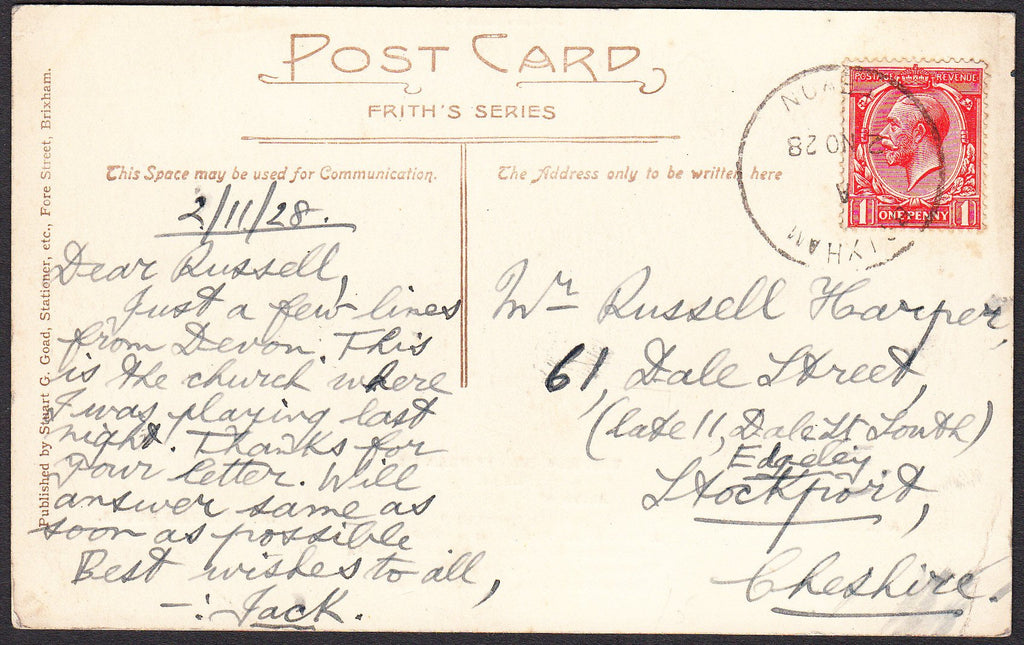 POST CARD
FRITH'S SERIES
This Space may be used for Communication.
The Address only to be written here
Published by Stuart G. Goad, Stationer, etc., Fore Street, Brixham.
2/11/28.
Dear Russell,
Just a few lines
from Devon. This
is the church where
I was playing last
night. Thanks for
your letter. Will
answer same as
soon as possible
Best wishes to all,
-: Jack.
POSTAGE REVENUE
1 ONE PENNY 1
2 NO 28
Mr Russell Harper,
61, Dale Street,
(late 11, Dale St South)
Edgeley
Stockport,
Cheshire.